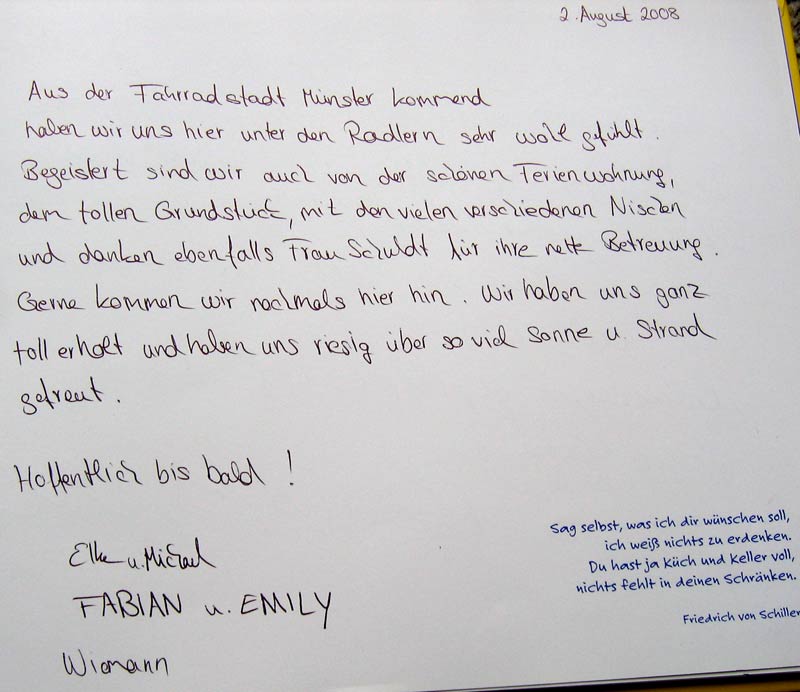 2. August 2008
Aus der Fahrradstadt Münster kommend
haben wir uns hier unter den Radlern sehr wohl gefühlt.
Begeistert sind wir auch von der schönen Ferienwohnung,
dem tollen Grundstück, mit den vielen verschiedenen Nischen
und danken ebenfalls Frau Schuldt für ihre nette Betreuung.
Gerne kommen wir nochmals hier hin. Wir haben uns ganz
toll erholt und haben uns riesig über so viel Sonne u. Strand
gefreut.
Hoffentlich bis bald!
Elke u. Michael
FABIAN u. EMILY
Wiemann
Sag selbst, was ich dir wünschen soll,
ich weiß nichts zu erdenken.
Du hast ja Küch und Keller voll,
nichts fehlt in deinen Schränken.
Friedrich von Schiller